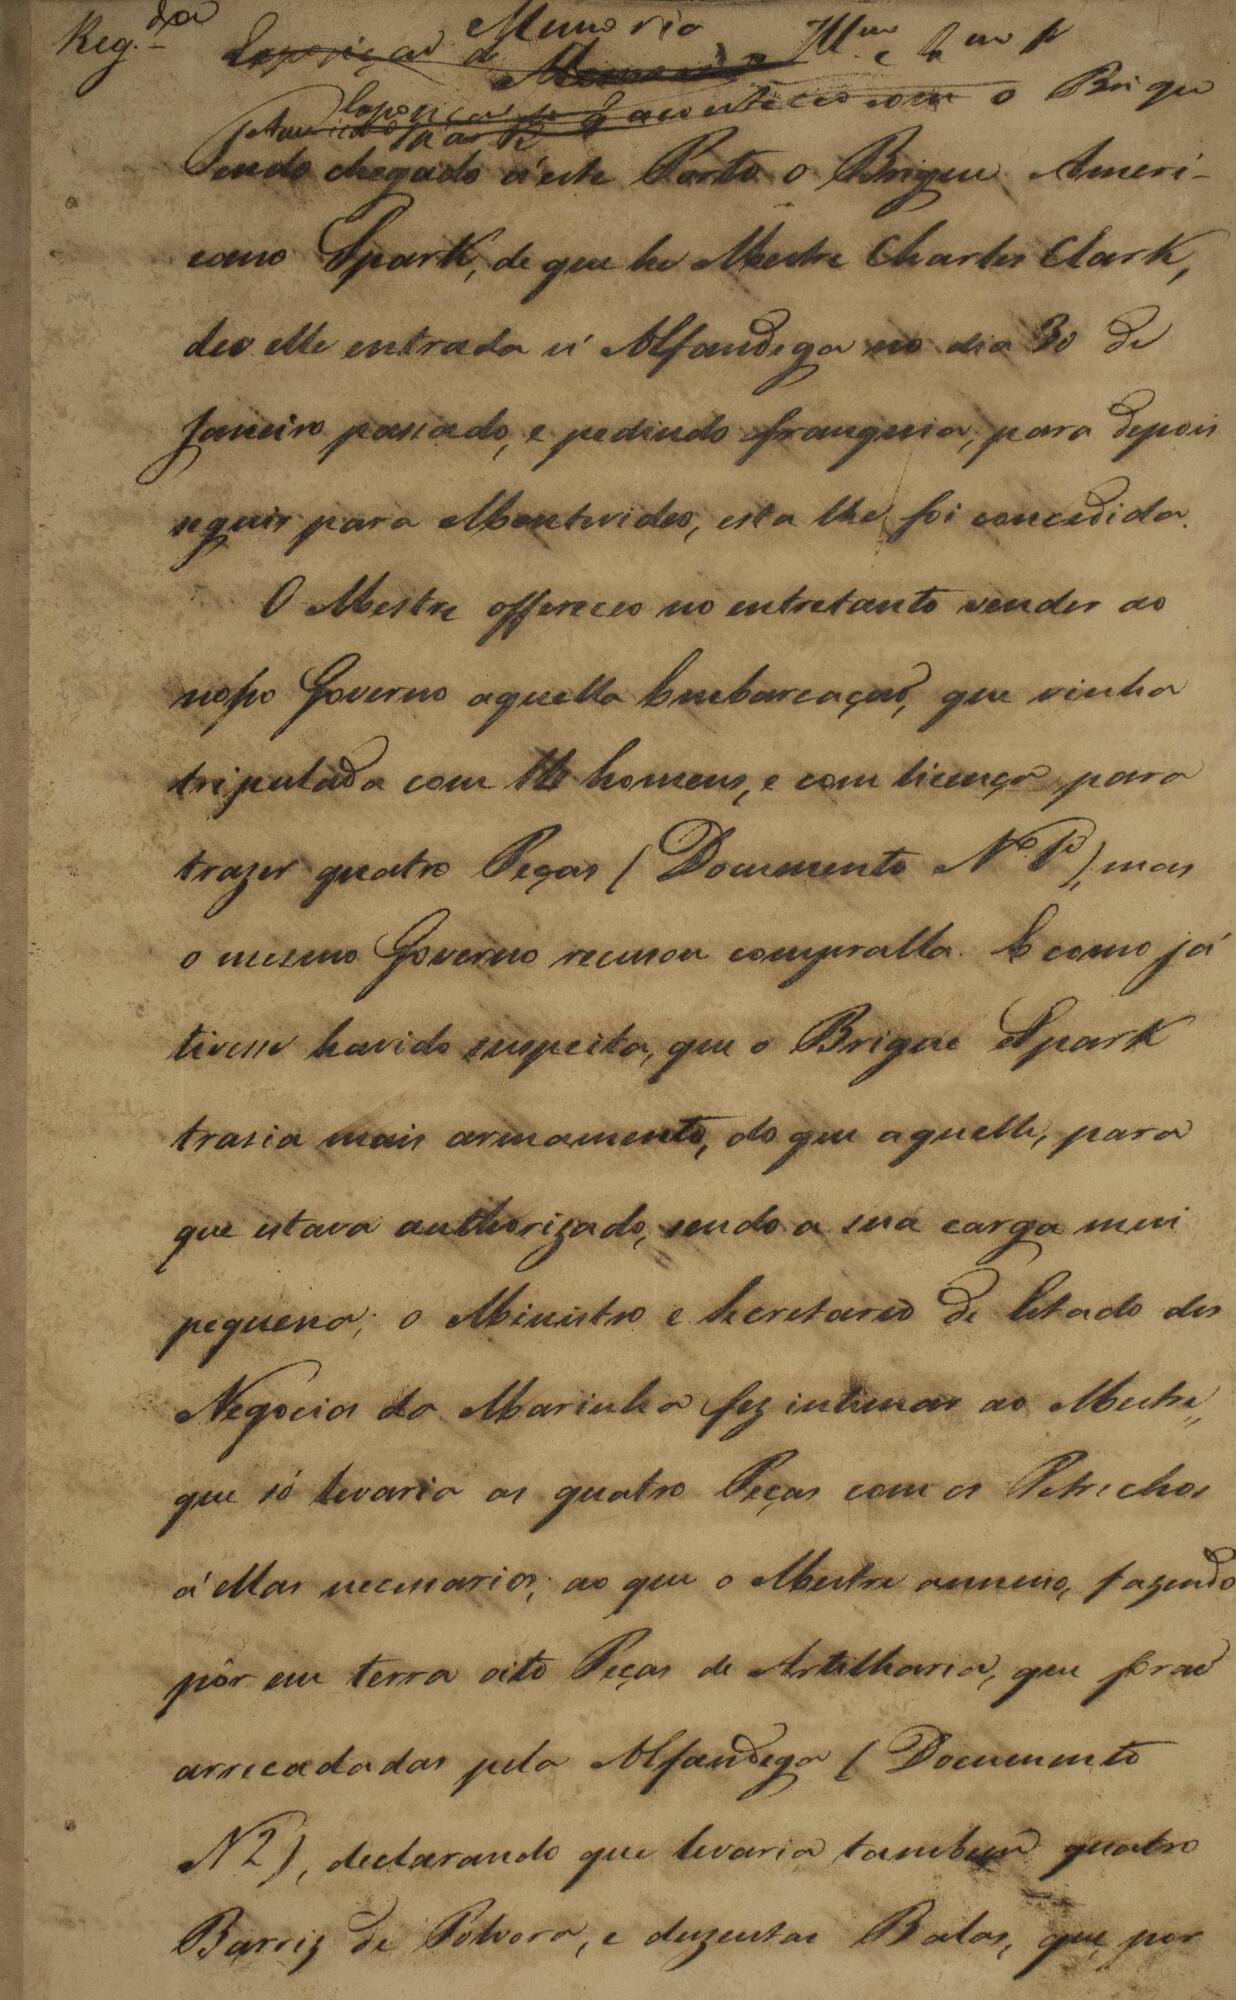 Reg.da
Memoria
Exposição d Memoria Illmo e
Exposição do q aconteceo com o Brigu
Sendo chegado á este Porto o Brigue Ameri-
cano Spark, de que he Mestre Charles Clark,
deo elle entrada n' Alfandega no dia 30 de
Janeiro passado, e pedindo franquia, para depois
seguir para Montevideo, esta lhe foi concedida.
O Mestre offereceo no entretanto vender ao
nosso Governo aquella Embarcação, que vinha
tripulada com homens, e com licença para
trazer quatro Peças (Documento No 1º), mas
o mesmo Governo recusou compralla. E como já
tivesse havido suspeita, que o Brigue Spark
trasia mais armamento, do que aquelle, para
que estava authorizado, sendo a sua carga mui
pequena; o Ministro e Secretario de Estado dos
Negocios da Marinha fez intimar ao Mestre,
que só levaria as quatro Peças com os Petrechos
á ellas necessarios; ao que o Mestre annuio, fazendo
pôr em terra oito Peças de Artilharia, que forão
arrecadadas pela Alfandega (Documento
N 2), declarando que levaria tambem quatro
Barriz de Polvora, e duzentas Balas, que por